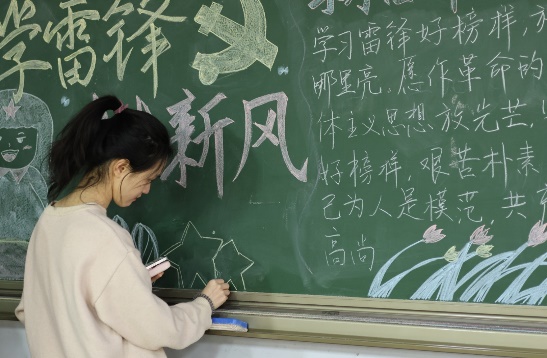 学雷锋
新风
学习雷锋好榜样，放
那里亮，愿作革命的
体主义思想放光芒，
好榜样，艰苦朴素
己为人是模范，共
高尚